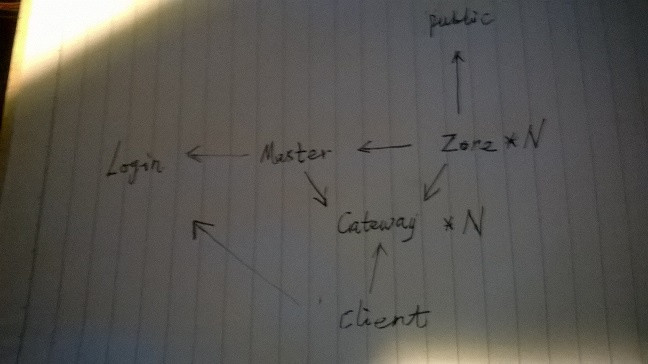 public
Login ← Master ← Zone * N
Gateway * N
Client